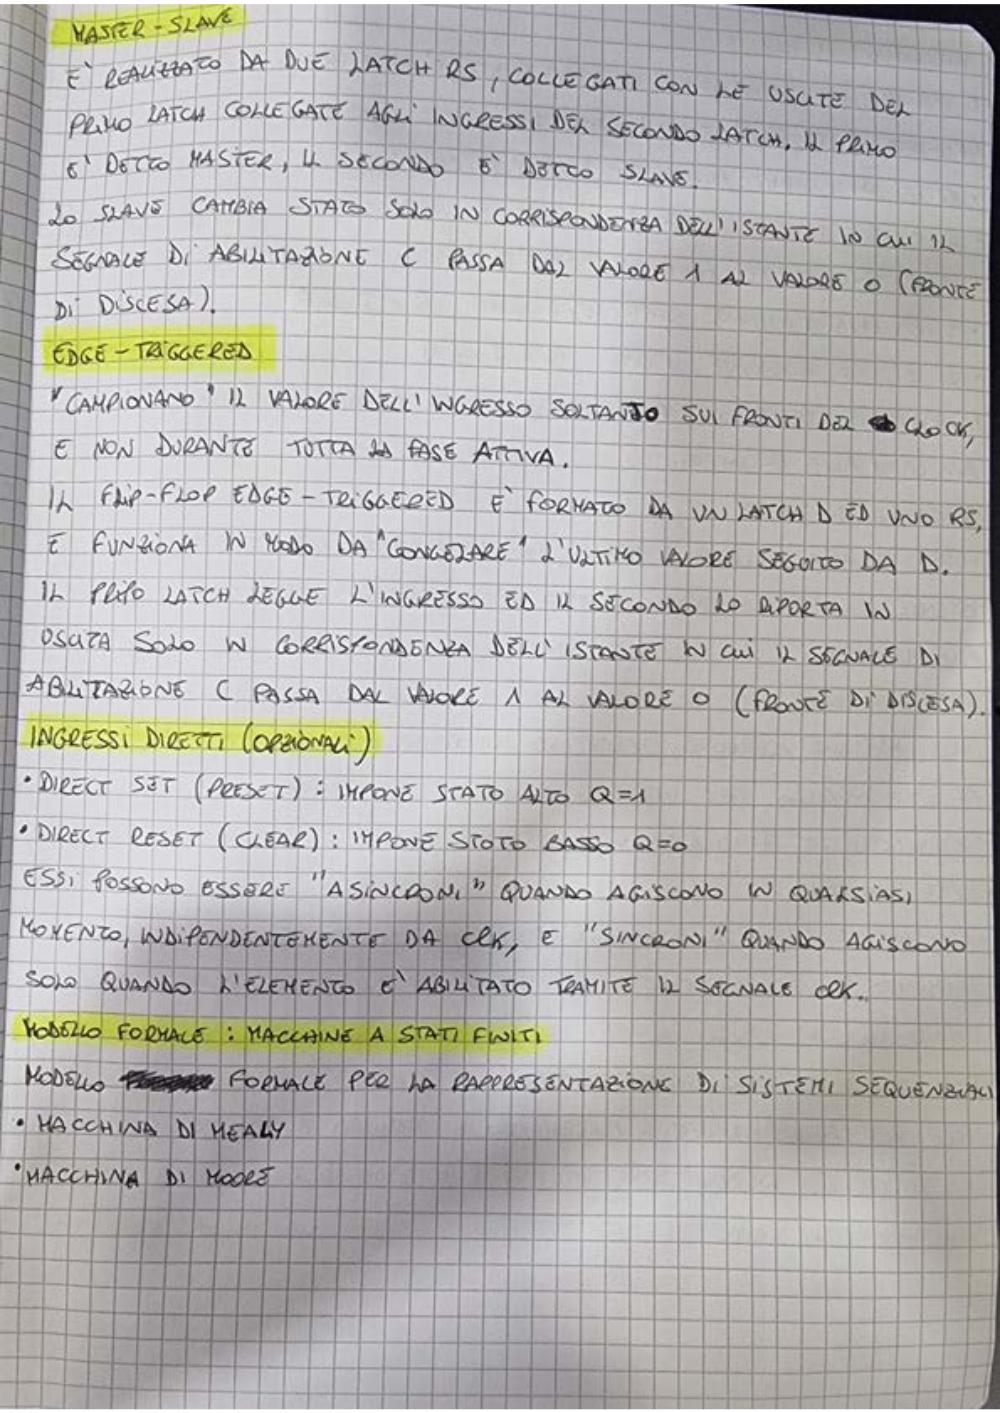 MASTER-SLAVE
E' REALIZZATO DA DUE LATCH RS, COLLEGATI CON LE USCITE DEL
PRIMO LATCH COLLEGATE AGLI INGRESSI DEL SECONDO LATCH. IL PRIMO
E' DETTO MASTER, IL SECONDO E' DETTO SLAVE.
LO SLAVE CAMBIA STATO SOLO IN CORRISPONDENZA DELL'ISTANTE IN CUI IL
SEGNALE DI ABILITAZIONE C PASSA DAL VALORE 1 AL VALORE 0 (FRONTE
DI DISCESA).
EDGE-TRIGGERED
"CAMPIONANO" IL VALORE DELL'INGRESSO SOLTANTO SUI FRONTI DEL CLOCK,
E NON DURANTE TUTTA LA FASE ATTIVA.
IL FLIP-FLOP EDGE-TRIGGERED E' FORMATO DA UN LATCH D ED UNO RS,
E FUNZIONA IN MODO DA "CONGELARE" L'ULTIMO VALORE SEGUITO DA D.
IL PRIMO LATCH LEGGE L'INGRESSO ED IL SECONDO LO RIPORTA IN
USCITA SOLO IN CORRISPONDENZA DELL'ISTANTE IN CUI IL SEGNALE DI
ABILITAZIONE C PASSA DAL VALORE 1 AL VALORE 0 (FRONTE DI DISCESA).
INGRESSI DIRETTI (OPZIONALI)
• DIRECT SET (PRESET): IMPONE STATO ALTO Q=1
• DIRECT RESET (CLEAR): IMPONE STATO BASSO Q=0
ESSI POSSONO ESSERE "ASINCRONI" QUANDO AGISCONO IN QUALSIASI
MOMENTO, INDIPENDENTEMENTE DA CLK, E "SINCRONI" QUANDO AGISCONO
SOLO QUANDO L'ELEMENTO E' ABILITATO TRAMITE IL SEGNALE CLK.
MODELLO FORMALE: MACCHINE A STATI FINITI
MODELLO FORMALE PER LA RAPPRESENTAZIONE DI SISTEMI SEQUENZIALI
• MACCHINA DI MEALY
• MACCHINA DI MOORE